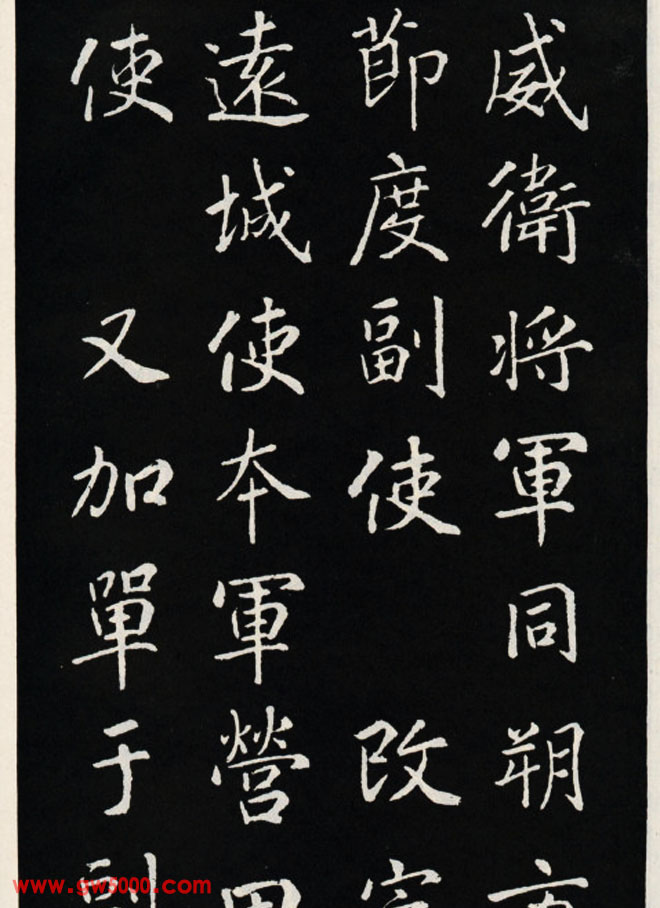 威衛將軍同朔方
節度副使 改定
遠城使本軍營田
使 又加單于副
www.gw5000.com